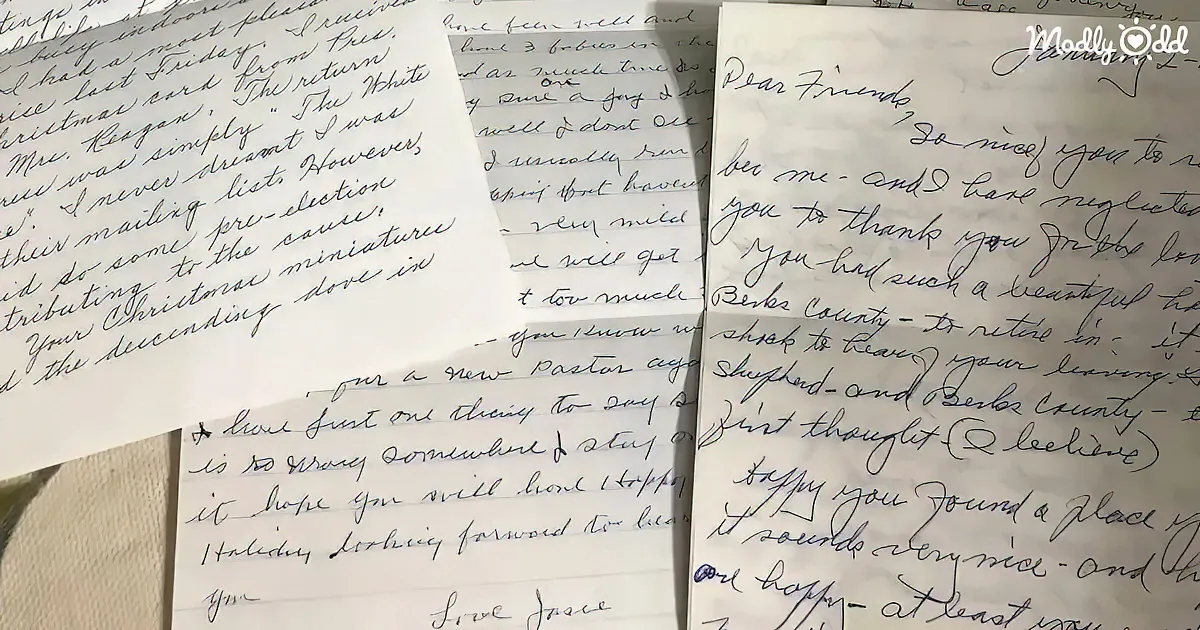 tings in
busy indoors
I had a most pleasant
rise last Friday. I received
hristmas card from Pres.
Mrs. Reagan. The return
ress was simply "The White
se". I never dreamt I was
their mailing list. However,
id do some pre-election
tributing to the cause.
Your Christmas miniatures
d the descending dove in
have been well and
have 3 babies in
and as much time as
one
sure a joy I
well I dont see
I usually
very mild
we will get
t too much
you Know
for a new Pastor aga
I have Just one thing to say
is so wrong somewhere I stay
it hope you will have Happy
Holiday looking forward to hear
you
Love Josie
Madly Odd
January 2
Dear Friends,
So nice of you to
ber me - and I have neglected
you to thank you for the lov
You had such a beautiful ho
Berks County - to retire in - it
shock to hear of your leaving
Shepherd - and Berks County -
first thought (I believe)
Happy you found a place
it sounds very nice - and
are happy - at least you